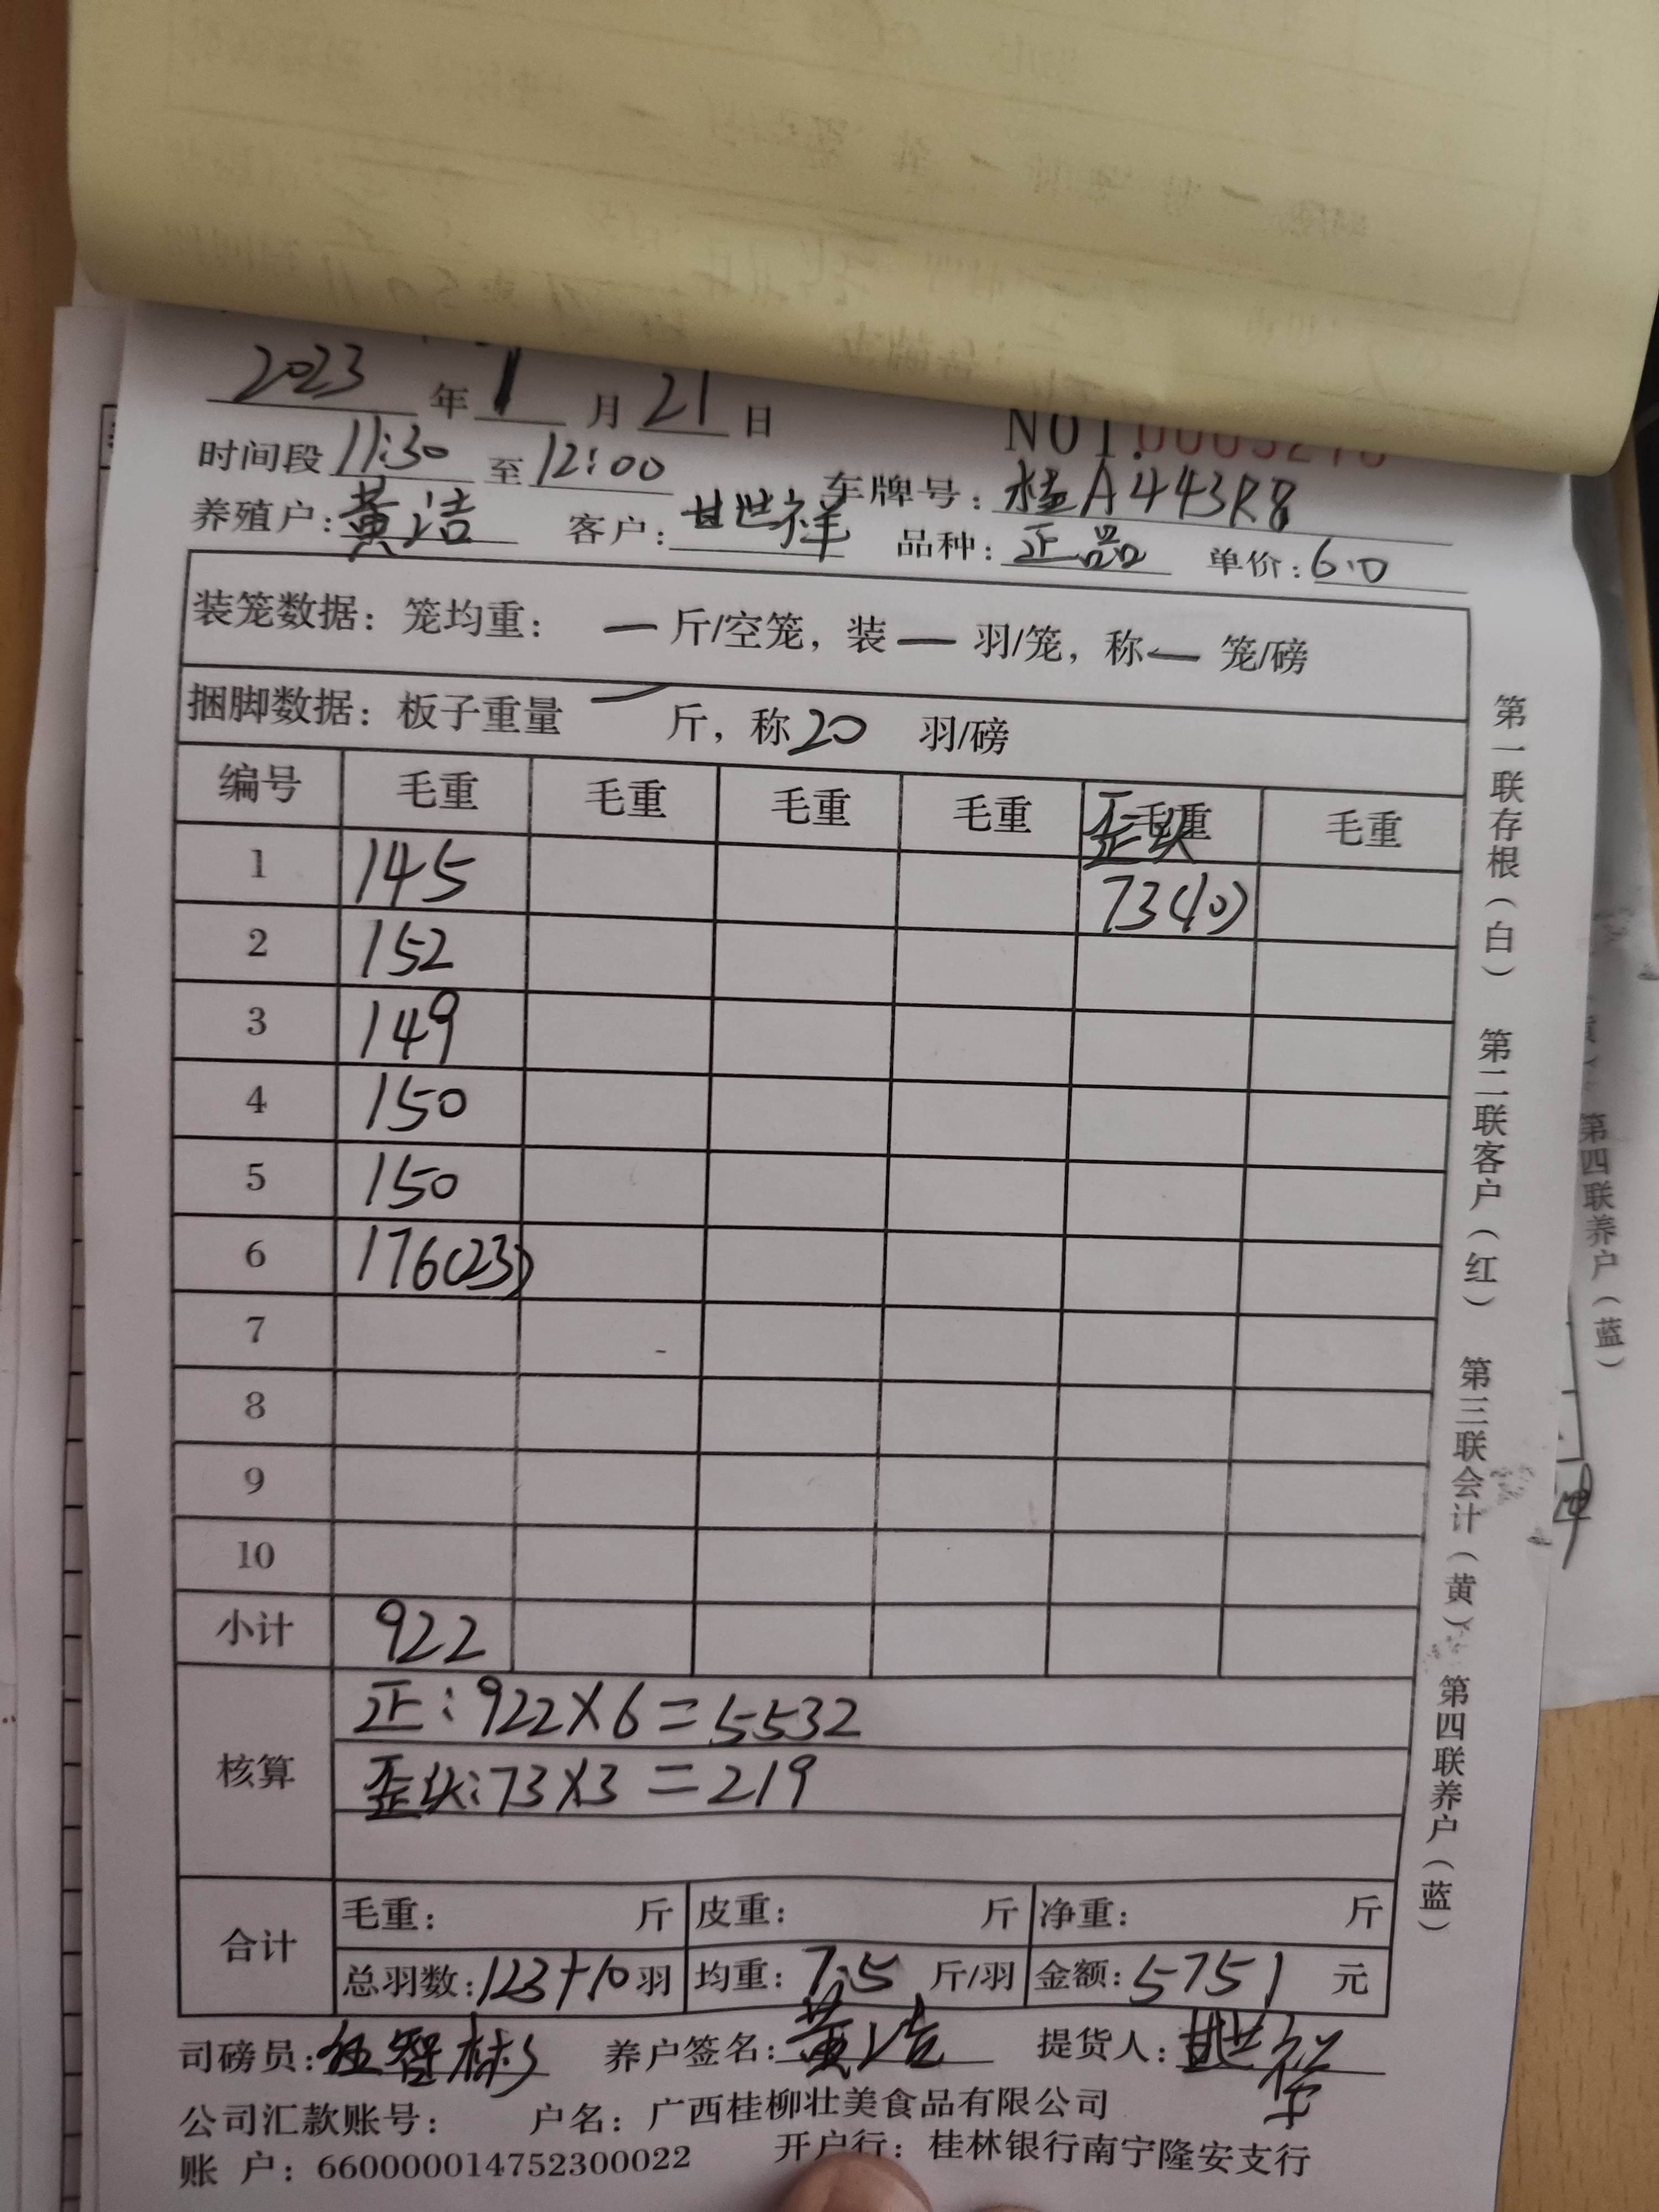 2023 年 月 21 日
NO1.
时间段 11:30 至 12:00 车牌号: 桂A443R8
养殖户: 黄洁 客户: 甘世祥 品种: 正品 单价: 6.0
装笼数据: 笼均重: — 斤/空笼, 装 — 羽/笼, 称 — 笼/磅
捆脚数据: 板子重量 — 斤, 称 20 羽/磅
编号 毛重 毛重 毛重 毛重 毛重 歪头 毛重
1 145 73(10)
2 152
3 149
4 150
5 150
6 176(23)
7
8
9
10
小计 922
核算 正: 922×6=5532
歪头: 73×3=219
合计 毛重: 斤 皮重: 斤 净重: 斤
总羽数: 123+10 羽 均重: 7.5 斤/羽 金额: 5751 元
司磅员: 伍智彬 养户签名: 黄洁 提货人: 甘世祥
公司汇款账号: 户名: 广西桂柳壮美食品有限公司
账 户: 660000014752300022 开户行: 桂林银行南宁隆安支行
第一联存根（白） 第二联客户（红） 第三联会计（黄） 第四联养户（蓝）
第四联养户（蓝）